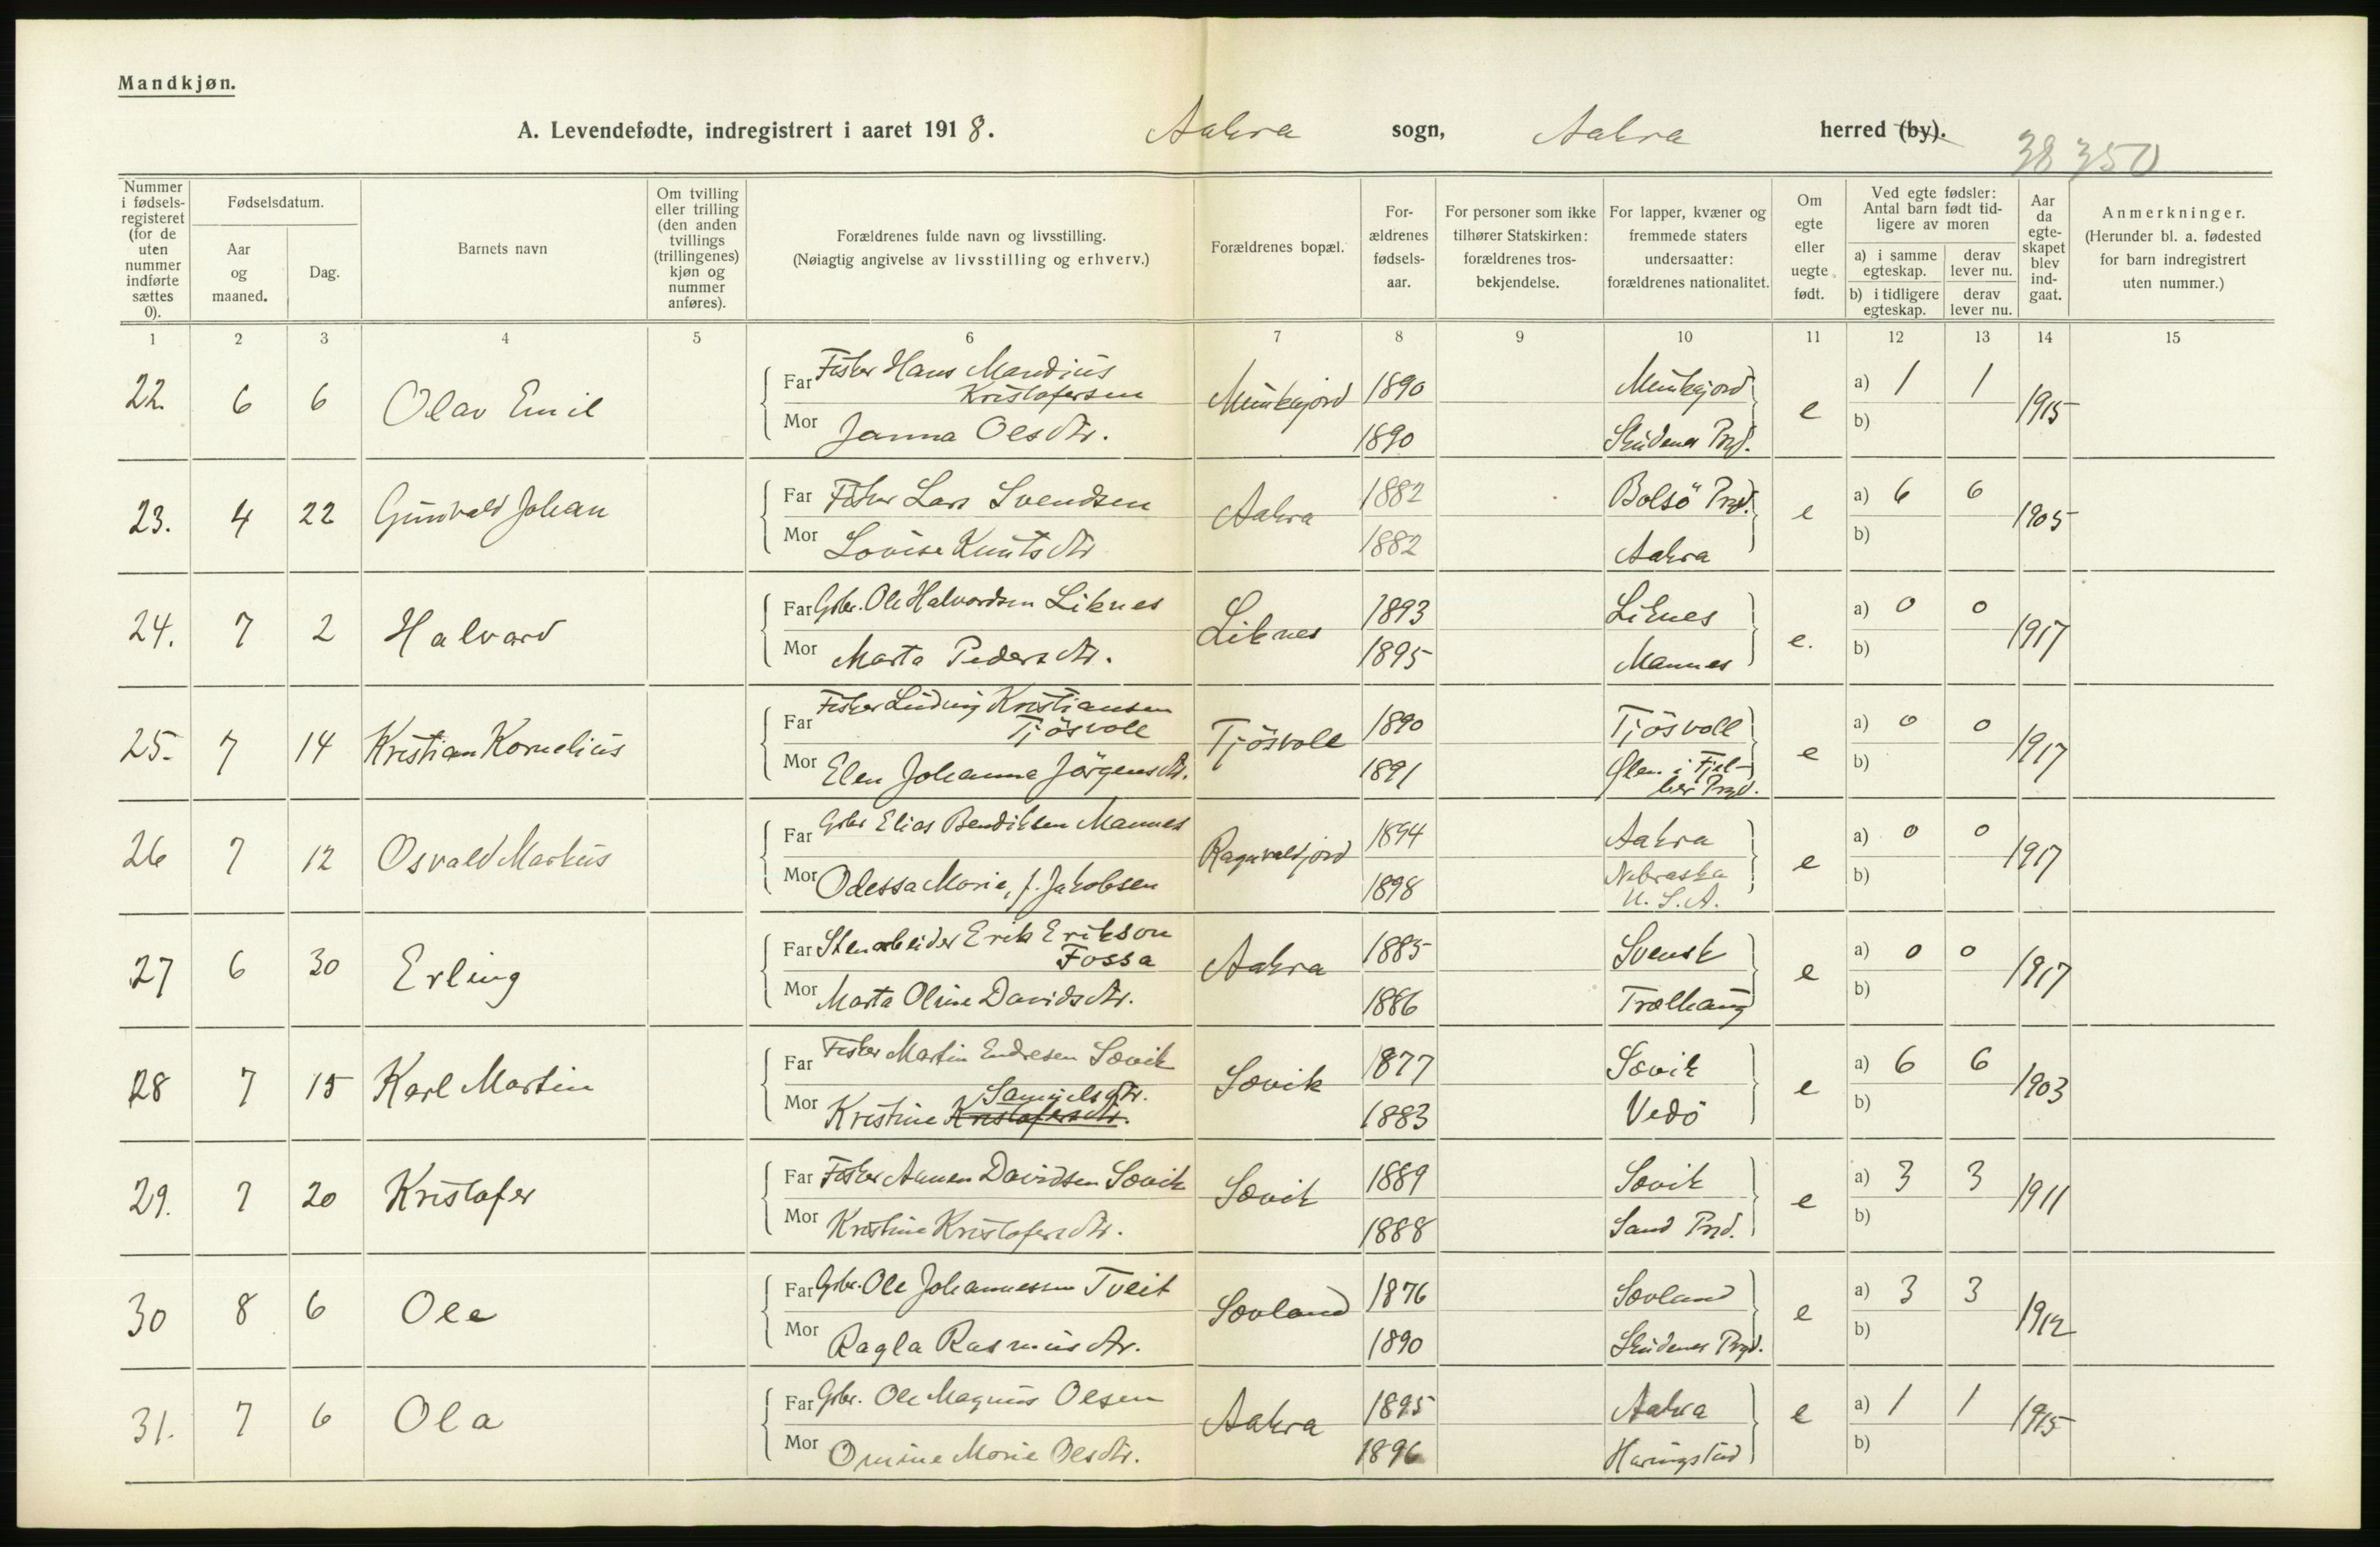 Mandkjøn.
A. Levendefødte, indregistrert i aaret 1918. Aakra sogn, Aakra herred (by).
38 350
Nummer i fødsels-registeret (for de uten nummer indførte sættes 0).
Fødselsdatum.
Aar og maaned.
Dag.
Barnets navn
Om tvilling eller trilling (den anden tvillings (trillingenes) kjøn og nummer anføres).
Forældrenes fulde navn og livsstilling.
(Nøiagtig angivelse av livsstilling og erhverv.)
Forældrenes bopæl.
For-ældrenes fødsels-aar.
For personer som ikke tilhører Statskirken: forældrenes tros-bekjendelse.
For lapper, kvæner og fremmede staters undersaatter: forældrenes nationalitet.
Om egte eller uegte født.
Ved egte fødsler: Antal barn født tid-ligere av moren
a) i samme egteskap.
derav lever nu.
b) i tidligere egteskap.
derav lever nu.
Aar da egte-skapet blev ind-gaat.
Anmerkninger.
(Herunder bl. a. fødested for barn indregistrert uten nummer.)
1 2 3 4 5 6 7 8 9 10 11 12 13 14 15
22. 6 6 Olav Emil
Far Fisker Hans Mandius Kristofersen Munkejord 1890 Munkejord e a) 1 1 1915
Mor Janna Olsdtr. 1890 Skudenes Prgd. b)
23. 4 22 Gunvald Johan
Far Fisker Lars Svendsen Aakra 1882 Bolsö Prgd. e a) 6 6 1905
Mor Lovise Knutsdtr 1882 Aakra b)
24. 7 2 Halvard
Far Gbr. Ole Halvordsen Liknes Liknes 1893 Liknes e. a) 0 0 1917
Mor Marta Pedersdtr. 1895 Mannes b)
25. 7 14 Kristian Kornelius
Far Fisker Ludvig Kristiansen Tjösvoll Tjösvoll 1890 Tjösvoll e a) 0 0 1917
Mor Elen Johanna Jörgensdtr. 1891 Ølen i Fjel-ber Prgd. b)
26 7 12 Osvald Markus
Far Gbr Elias Bendiksen Mannes Ragnvaldjord 1894 Aakra e a) 0 0 1917
Mor Odessa Marie, f. Jakobsen 1898 Nebraska U.S.A. b)
27 6 30 Erling
Far Stenarbeider Erik Erikson Fossa Aakra 1885 Svensk e a) 0 0 1917
Mor Marta Oline Davidsdtr. 1886 Trælhaug b)
28 7 15 Karl Martin
Far Fisker Martin Endresen Sævik Sævik 1877 Sævik e a) 6 6 1903
Mor Kristine Kristofersdtr. Samuelsdtr. 1883 Vedö b)
29. 7 20 Kristofer
Far Fisker Aanen Davidsen Sævik Sævik 1889 Sævik e a) 3 3 1911
Mor Kristine Kristofersdtr. 1888 Sand Prgd. b)
30 8 6 Ole
Far Gbr. Ole Johannessen Tveit Sævland 1876 Sævland e a) 3 3 1912
Mor Ragla Rasmusdtr. 1890 Skudenes Prgd. b)
31. 7 6 Ola
Far Gbr. Ole Magnus Olsen Aakra 1895 Aakra e a) 1 1 1915
Mor Omine Marie Olsdtr. 1896 Haringstad b)